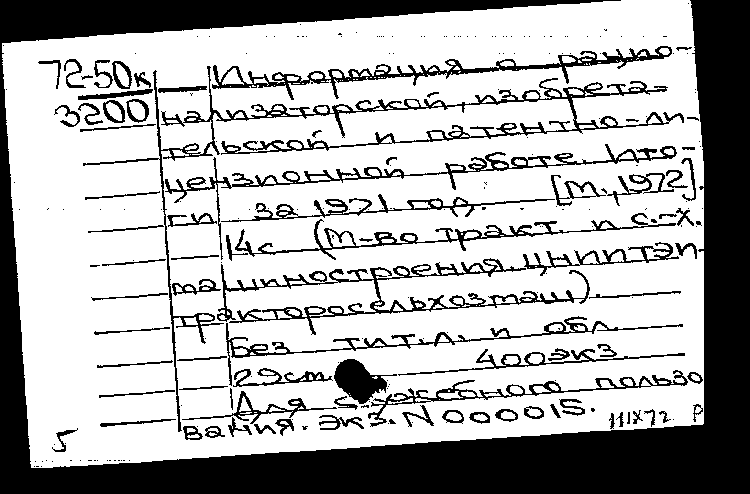 72-50к
3200
Информация о рацио-
нализаторской, изобрета-
тельской и патентно-ли-
цензионной работе. Ито-
ги за 1971 год. [М., 1972].
14с. (М-во тракт. и с.-х.
машиностроения. ЦНИИТЭИ-
тракторосельхозмаш).
Без тит.л. и обл.
29см. 400экз.
Для служебного пользо
вания. Экз. N 000015.
5
111X72 Р